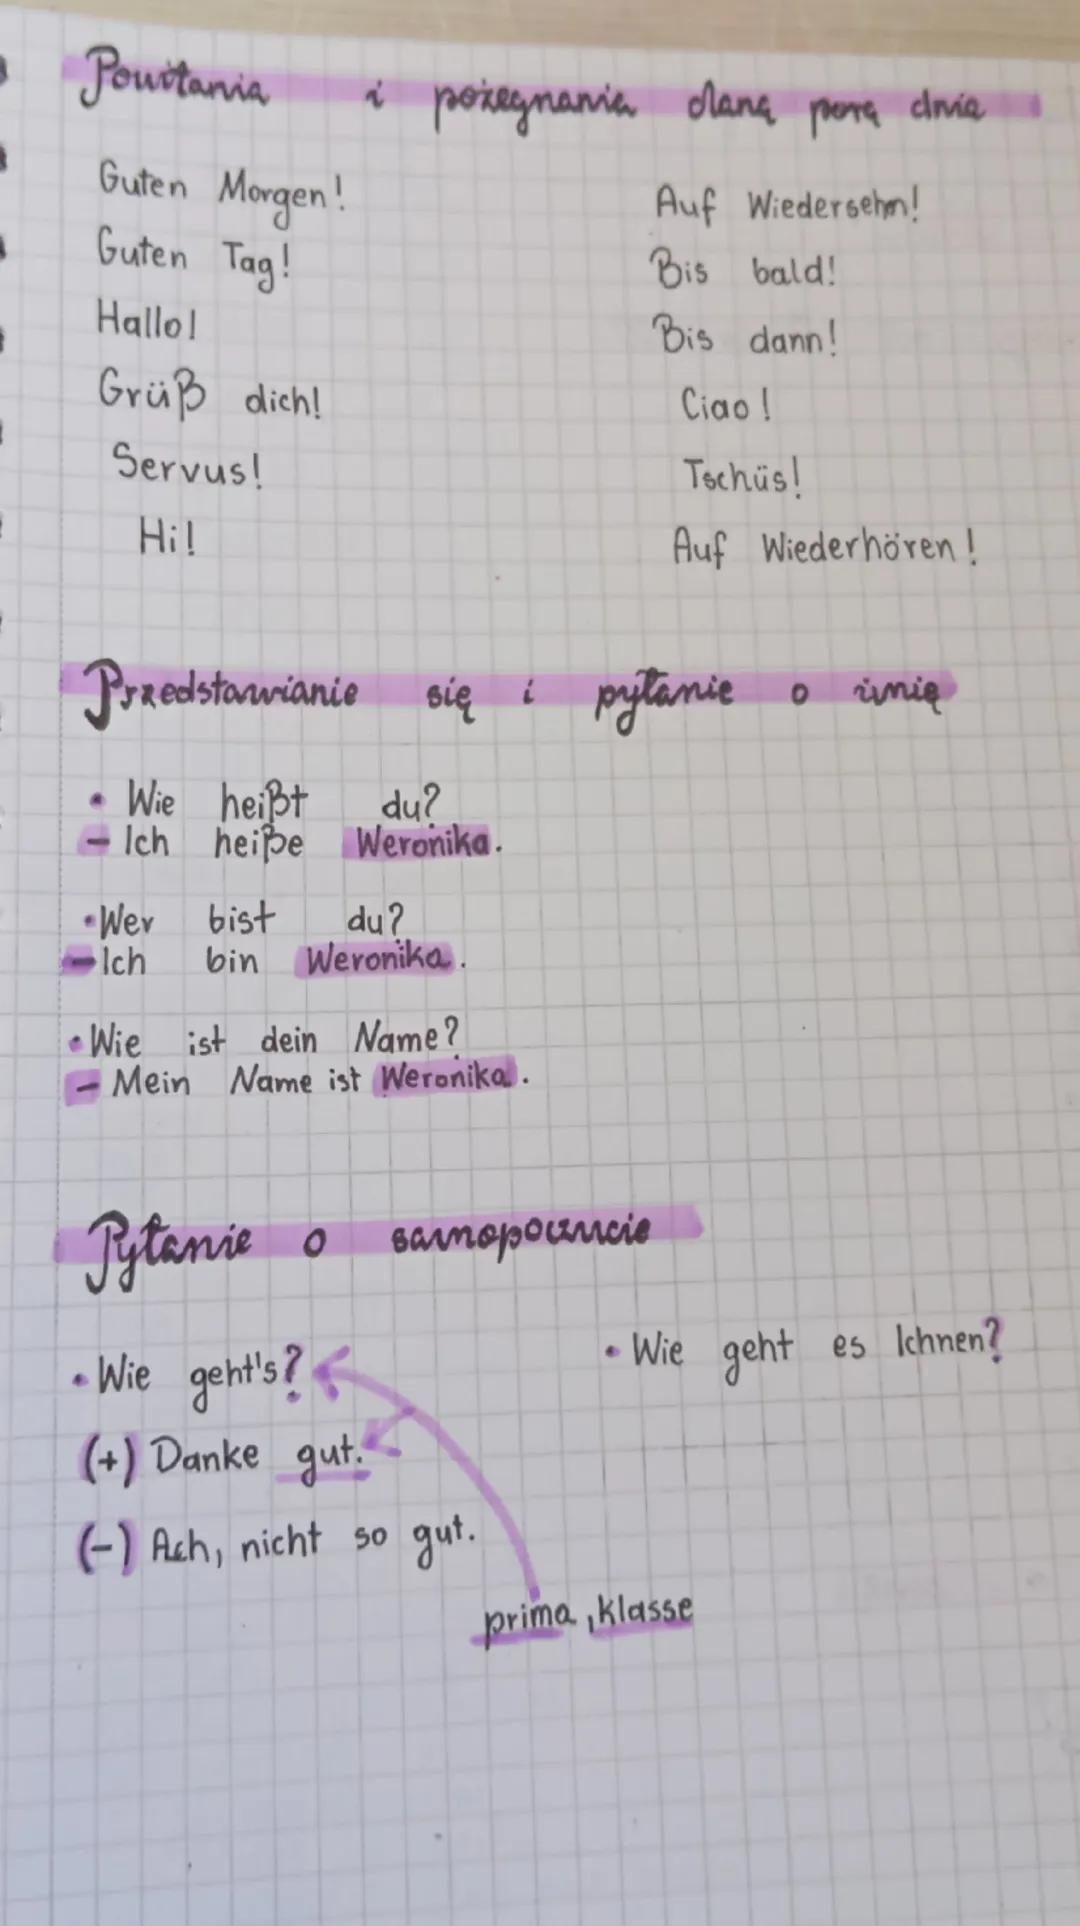 Powitania i pożegnania daną porą dnia
Guten Morgen!
Guten Tag!
Hallo!
Grüß dich!
Servus!
Hi!
Auf Wiedersehn!
Bis bald!
Bis dann!
Ciao!
Tschüs!
Auf Wiederhören!
Przedstawianie się i pytanie o imię
• Wie heißt du?
- Ich heiße Weronika.
• Wer bist du?
- Ich bin Weronika.
• Wie ist dein Name?
- Mein Name ist Weronika.
Pytanie o samopoczucie
• Wie geht's?
(+) Danke gut.
(-) Ach, nicht so gut.
prima, klasse
• Wie geht es Ichnen?